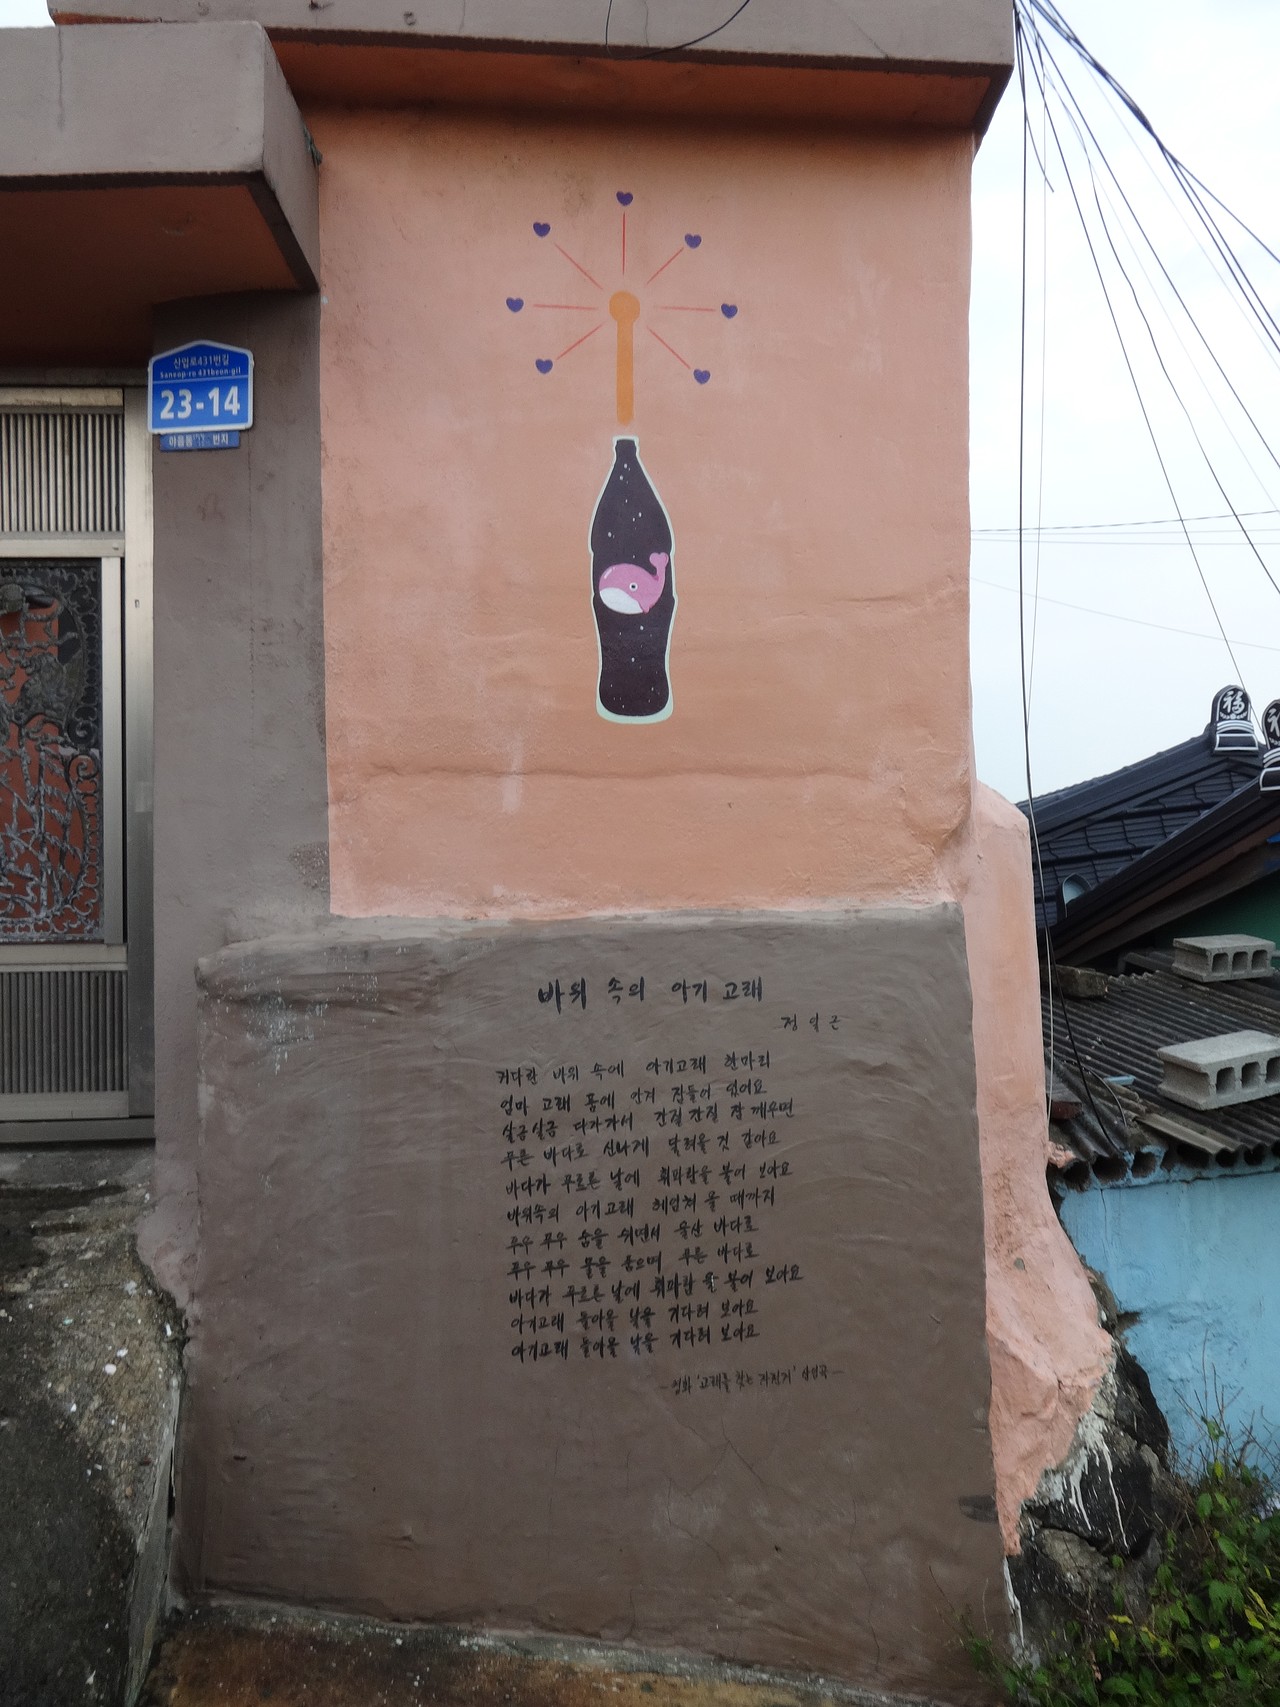 산업로431번길
Saneop-ro 431beon-gil
23-14
야음동 번지
福
바위 속의 아기 고래
정일근
커다란 바위 속에 아기고래 한마리
엄마 고래 품에 안겨 잠들어 있어요
살금살금 다가가서 간질간질 잠 깨우면
푸른 바다로 신나게 달려올 것 같아요
바다가 푸르른 날에 휘파람을 불어 보아요
바위속의 아기고래 헤엄쳐 올 때까지
푸우 푸우 숨을 쉬면서 울산 바다로
푸우 푸우 물을 뿜으며 푸른 바다로
바다가 푸르른 날에 휘파람을 불어 보아요
아기고래 돌아올 날을 기다려 보아요
아기고래 돌아올 날을 기다려 보아요
-영화 '고래를 찾는 자전거' 삽입곡-